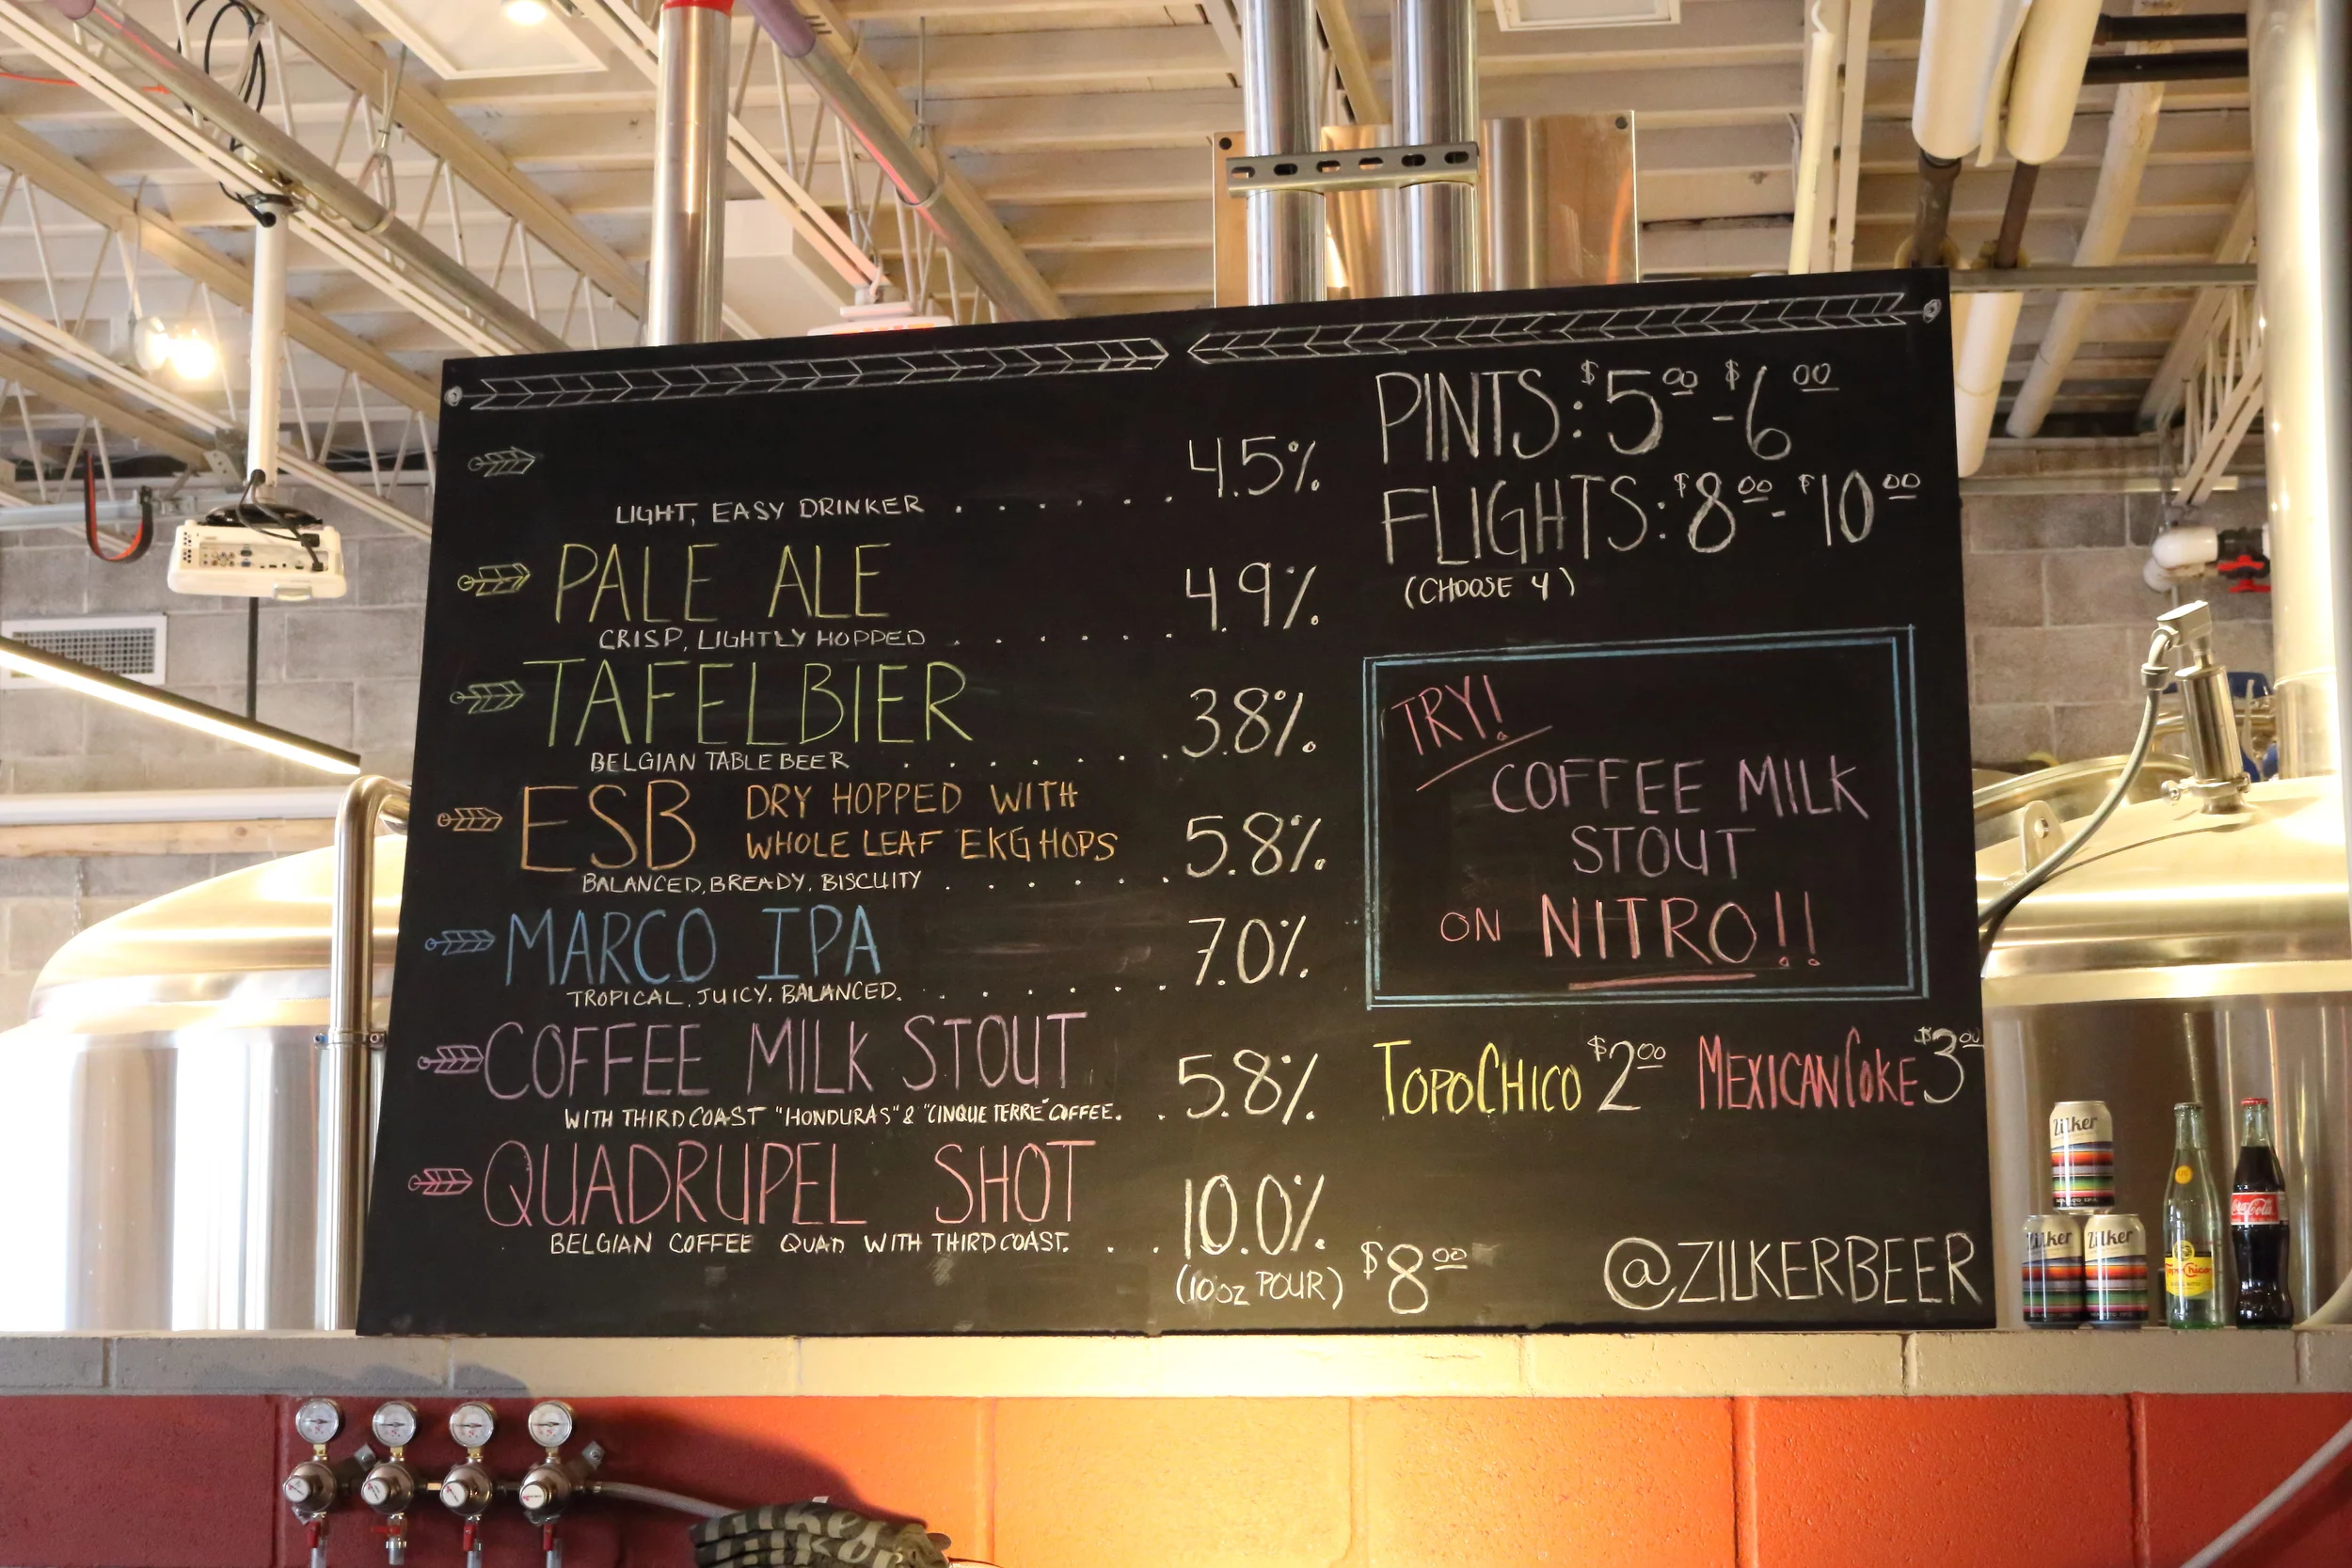 4.5%
LIGHT, EASY DRINKER . . . . . .
PALE ALE 4.9%
CRISP, LIGHTLY HOPPED . . . . . .
TAFELBIER 3.8%
BELGIAN TABLE BEER . . . . . . .
ESB DRY HOPPED WITH
WHOLE LEAF EKG HOPS 5.8%
BALANCED, BREADY, BISCUITY . . . . . .
MARCO IPA 7.0%
TROPICAL, JUICY, BALANCED. . . . . . .
COFFEE MILK STOUT 5.8%
WITH THIRD COAST "HONDURAS" & "CINQUE TERRE" COFFEE. .
QUADRUPEL SHOT 10.0%
BELGIAN COFFEE QUAD WITH THIRD COAST. . .
(10oz POUR) $8.00
PINTS: $5.00 - $6.00
FLIGHTS: $8.00 - $10.00
(CHOOSE 4)
TRY!
COFFEE MILK
STOUT
ON NITRO!!
TOPO CHICO $2.00 MEXICAN COKE $3.00
@ZILKERBEER
Zilker
Zilker
Zilker
Topo Chico
Coca-Cola